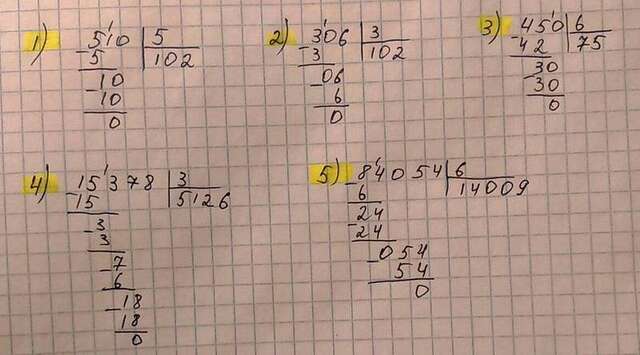 1) 510 | 5
- 5 | 102
10
- 10
0
2) 306 | 3
- 3 | 102
06
- 6
0
3) 450 | 6
- 42 | 75
30
- 30
0
4) 15378 | 3
- 15 | 5126
3
- 3
7
- 6
18
- 18
0
5) 84054 | 6
- 6 | 14009
24
- 24
054
- 54
0